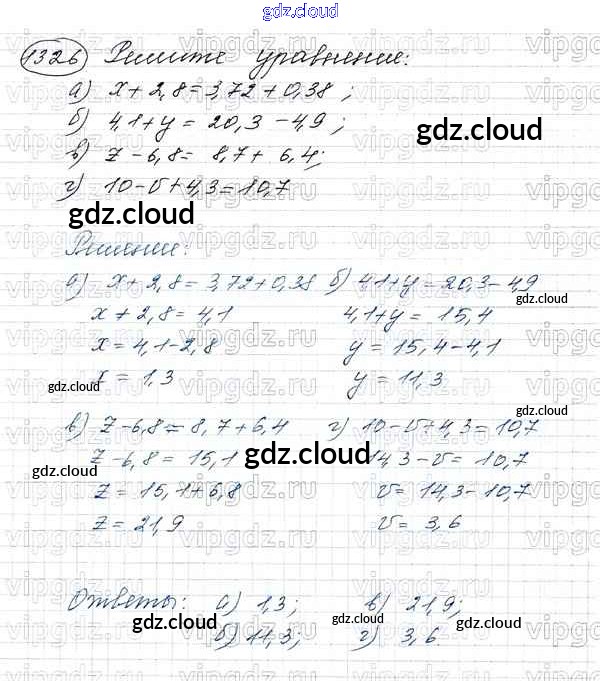 gdz.cloud
1326 Решите уравнение:
а) x + 2,8 = 3,72 + 0,38;
б) 4,1 + y = 20,3 - 4,9;
gdz.cloud
в) z - 6,8 = 8,7 + 6,4;
г) 10 - v + 4,3 = 10,7
gdz.cloud
Решение:
а) x + 2,8 = 3,72 + 0,38 б) 4,1 + y = 20,3 - 4,9
gdz.cloud
x + 2,8 = 4,1 4,1 + y = 15,4
x = 4,1 - 2,8 y = 15,4 - 4,1
gdz.cloud
x = 1,3 y = 11,3
gdz.cloud
в) z - 6,8 = 8,7 + 6,4 г) 10 - v + 4,3 = 10,7
z - 6,8 = 15,1 14,3 - v = 10,7
gdz.cloud gdz.cloud gdz.cloud
z = 15,1 + 6,8 v = 14,3 - 10,7
z = 21,9 v = 3,6
Ответы: а) 1,3; в) 21,9;
gdz.cloud gdz.cloud gdz.cloud
б) 11,3; г) 3,6.